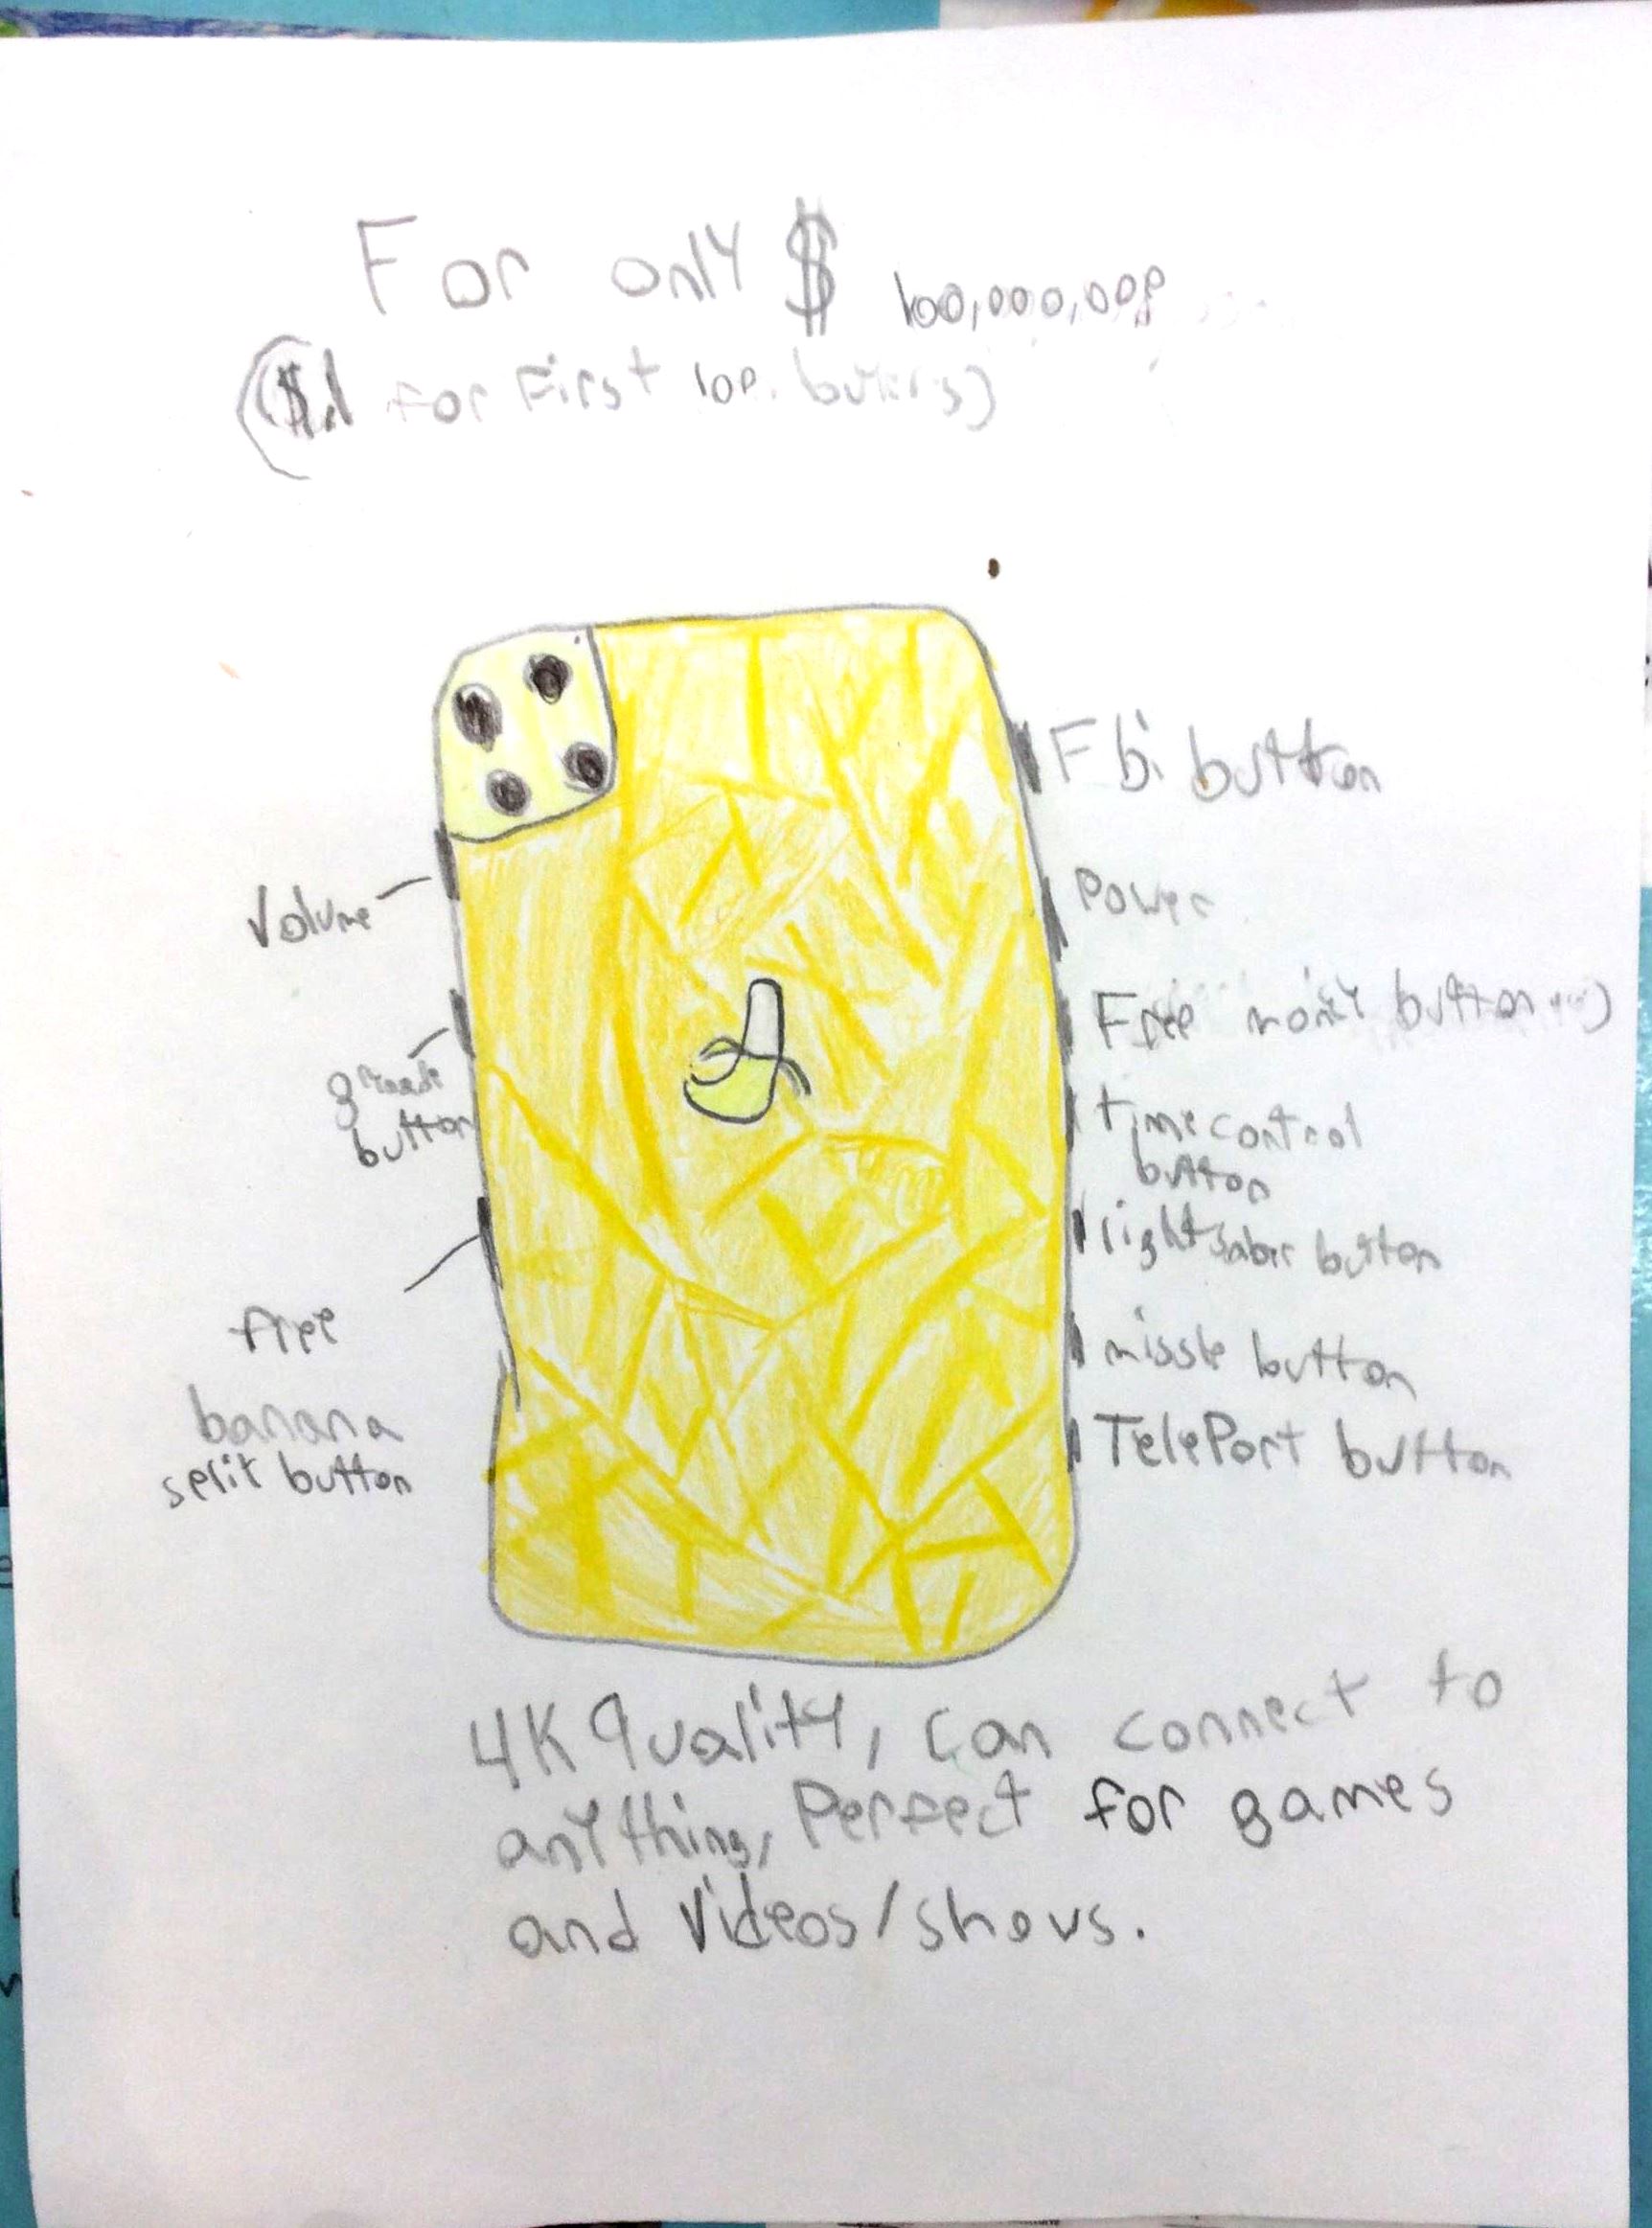 For only $ 100,000,000
($.1 for First 100. buyers)
Fbi button
Volume
Power
Free money button
button
time control
button
lightsaber button
free
missle button
banana
split button
TelePort button
4K quality, can connect to
anything, Perfect for games
and Videos/shows.